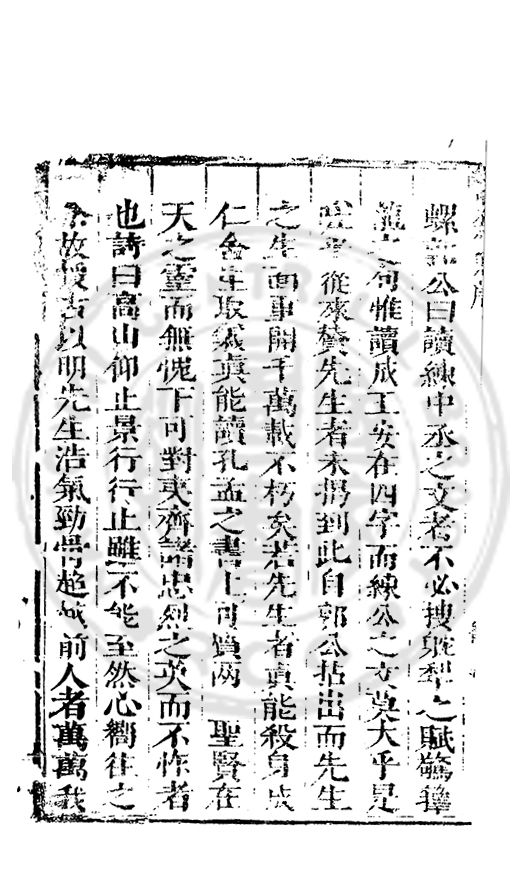 螺江公曰讀練中丞之文者不必搜躭犁之賦驚籜
龍之句惟讀成王安在四字而練公之文莫大乎是
從來贊先生者未搨到此自郭公拈出而先生
之生面重開千萬載不朽矣若先生者真能殺身成
仁舍生取義真能讀孔孟之書上可質兩 聖賢在
天之靈而無愧下可對夷齊諸忠烈之英而不怍者
也詩曰高山仰止景行行止雖不能至然心嚮往之
故援古以明先生浩氣勁骨超越前人者萬萬哉